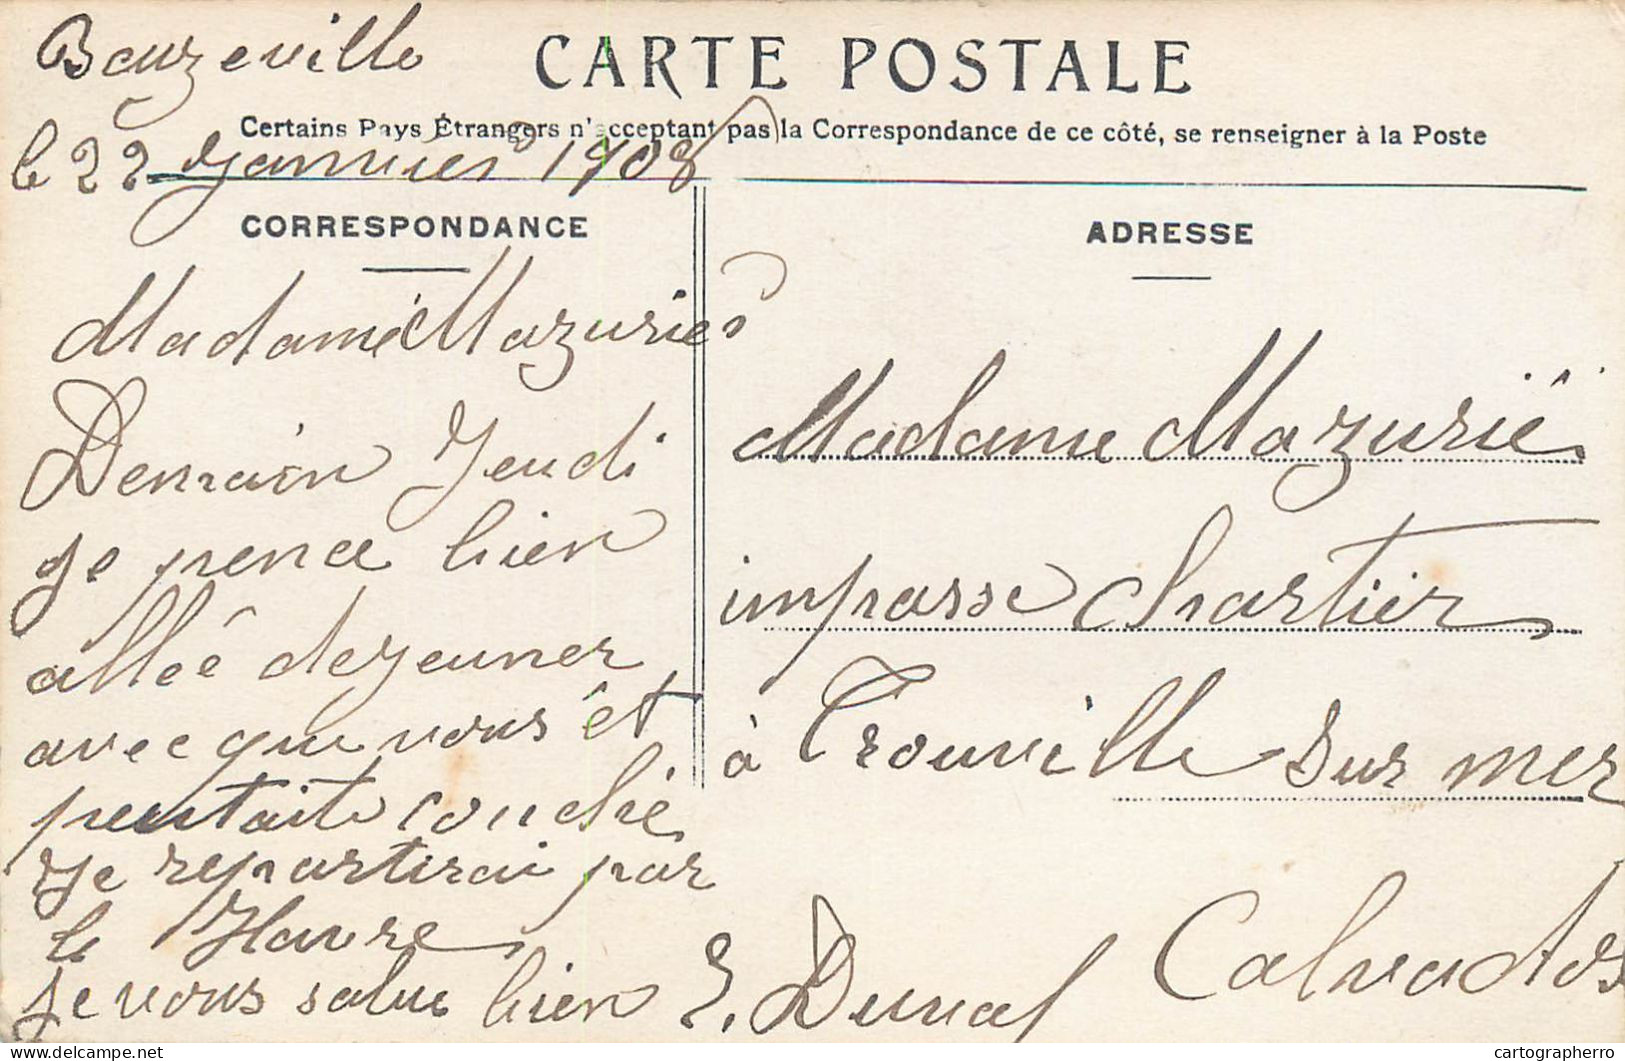 Beuzeville
CARTE POSTALE
Certains Pays Étrangers n'acceptant pas la Correspondance de ce côté, se renseigner à la Poste
le 22 janvier 1908
CORRESPONDANCE
ADRESSE
Madame Mazurie
Demain Jeudi
je pence bien
allée dejeuner
avec que vous et
peutaite couché
je repartirai par
le Havre
je vous salue bien E. Duval
Madame Mazurië
impasse Chartier
à Trouville sur mer
Calvados
www.delcampe.net
cartographerro